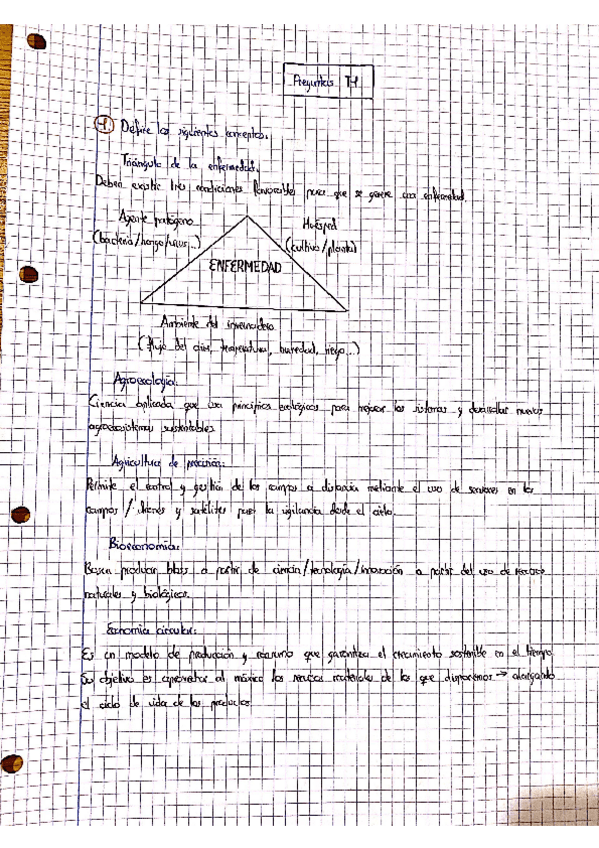 Preguntas T1
1. Define los siguientes conceptos.
Triángulo de la enfermedad.
Deben existir tres condiciones favorables para que se genere una enfermedad.
Agente patógeno
(bacteria/hongo/virus...)
Huésped
(cultivo/planta)
ENFERMEDAD
Ambiente del invernadero
(flujo del aire, temperatura, humedad, riego...)
Agroecología:
Ciencia aplicada que usa principios ecológicos para mejorar los sistemas y desarrollar nuevos
agroecosistemas sustentables
Agricultura de precisión:
Permite el control y gestión de los campos a distancia mediante el uso de sensores en los
campos / drones y satélites para la vigilancia desde el cielo.
Bioeconomía:
Busca producir bienes a partir de ciencia/tecnología/innovación a partir del uso de recursos
naturales y biológicos.
Economía circular:
Es un modelo de producción y consumo que garantiza el crecimiento sostenible en el tiempo.
Su objetivo es aprovechar al máximo los recursos materiales de los que disponemos → alargando
el ciclo de vida de los productos